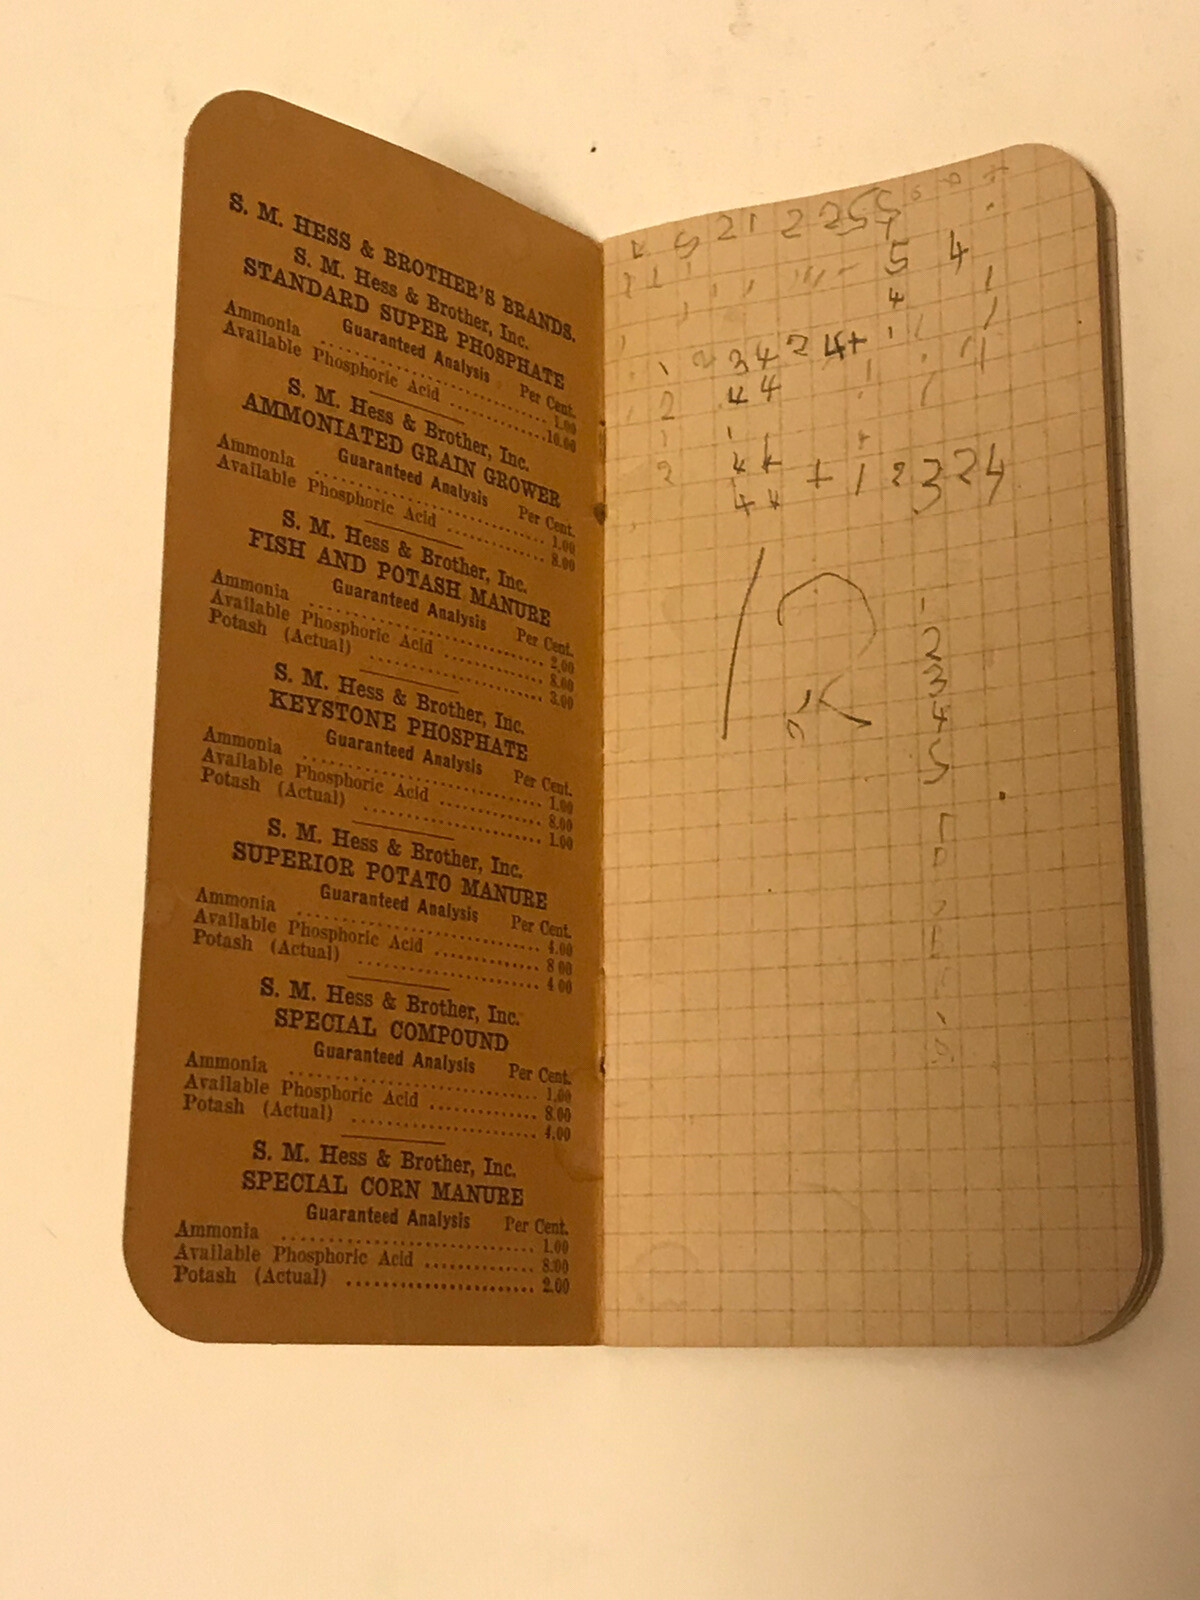 S. M. HESS & BROTHER'S BRANDS.
S. M. Hess & Brother, Inc.
STANDARD SUPER PHOSPHATE
Guaranteed Analysis Per Cent.
Ammonia .................... 1.00
Available Phosphoric Acid ............ 10.00
S. M. Hess & Brother, Inc.
AMMONIATED GRAIN GROWER
Guaranteed Analysis Per Cent.
Ammonia .................... 1.00
Available Phosphoric Acid ............ 8.00
S. M. Hess & Brother, Inc.
FISH AND POTASH MANURE
Guaranteed Analysis Per Cent.
Ammonia .................... 2.00
Available Phosphoric Acid ............ 8.00
Potash (Actual) .................... 3.00
S. M. Hess & Brother, Inc.
KEYSTONE PHOSPHATE
Guaranteed Analysis Per Cent.
Ammonia .................... 1.00
Available Phosphoric Acid ............ 8.00
Potash (Actual) .................... 1.00
S. M. Hess & Brother, Inc.
SUPERIOR POTATO MANURE
Guaranteed Analysis Per Cent.
Ammonia .................... 4.00
Available Phosphoric Acid ............ 8 00
Potash (Actual) .................... 4 00
S. M. Hess & Brother, Inc.
SPECIAL COMPOUND
Guaranteed Analysis Per Cent.
Ammonia .................... 1.00
Available Phosphoric Acid ............ 8.00
Potash (Actual) .................... 4.00
S. M. Hess & Brother, Inc.
SPECIAL CORN MANURE
Guaranteed Analysis Per Cent.
Ammonia .................... 1.00
Available Phosphoric Acid ............ 8.00
Potash (Actual) .................... 2.00
21 2 255
5 4
4
1 2 34 2 4+
2 44
2 44 + 1 2 3 2 4
44
1
2
3
4
5